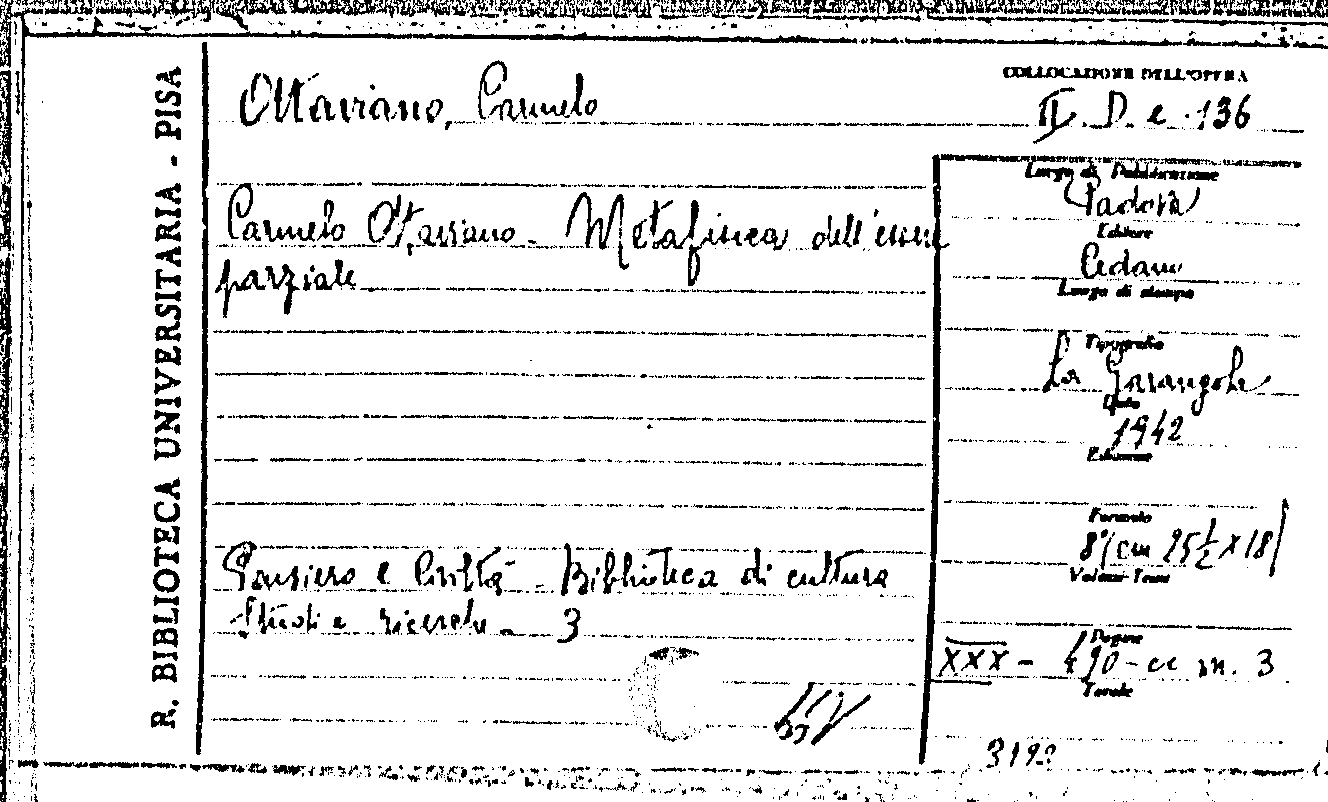 R. BIBLIOTECA UNIVERSITARIA - PISA
Ottaviano, Carmelo
COLLOCAZIONE DELL'OPERA
II. D. e. 136
Carmelo Ottaviano - Metafisica dell'essere
parziale
Luogo di Pubblicazione
Padova
Editore
Cedam
Luogo di stampa
Tipografia
La Garangola
Data
1942
Edizione
Formato
8°/cm 25½ x 18/
Volumi-Tomi
Pensiero e Civiltà - Biblioteca di cultura
Studi e ricerche - 3
Pagine
XXX - 490 - cc m. 3
Tavole